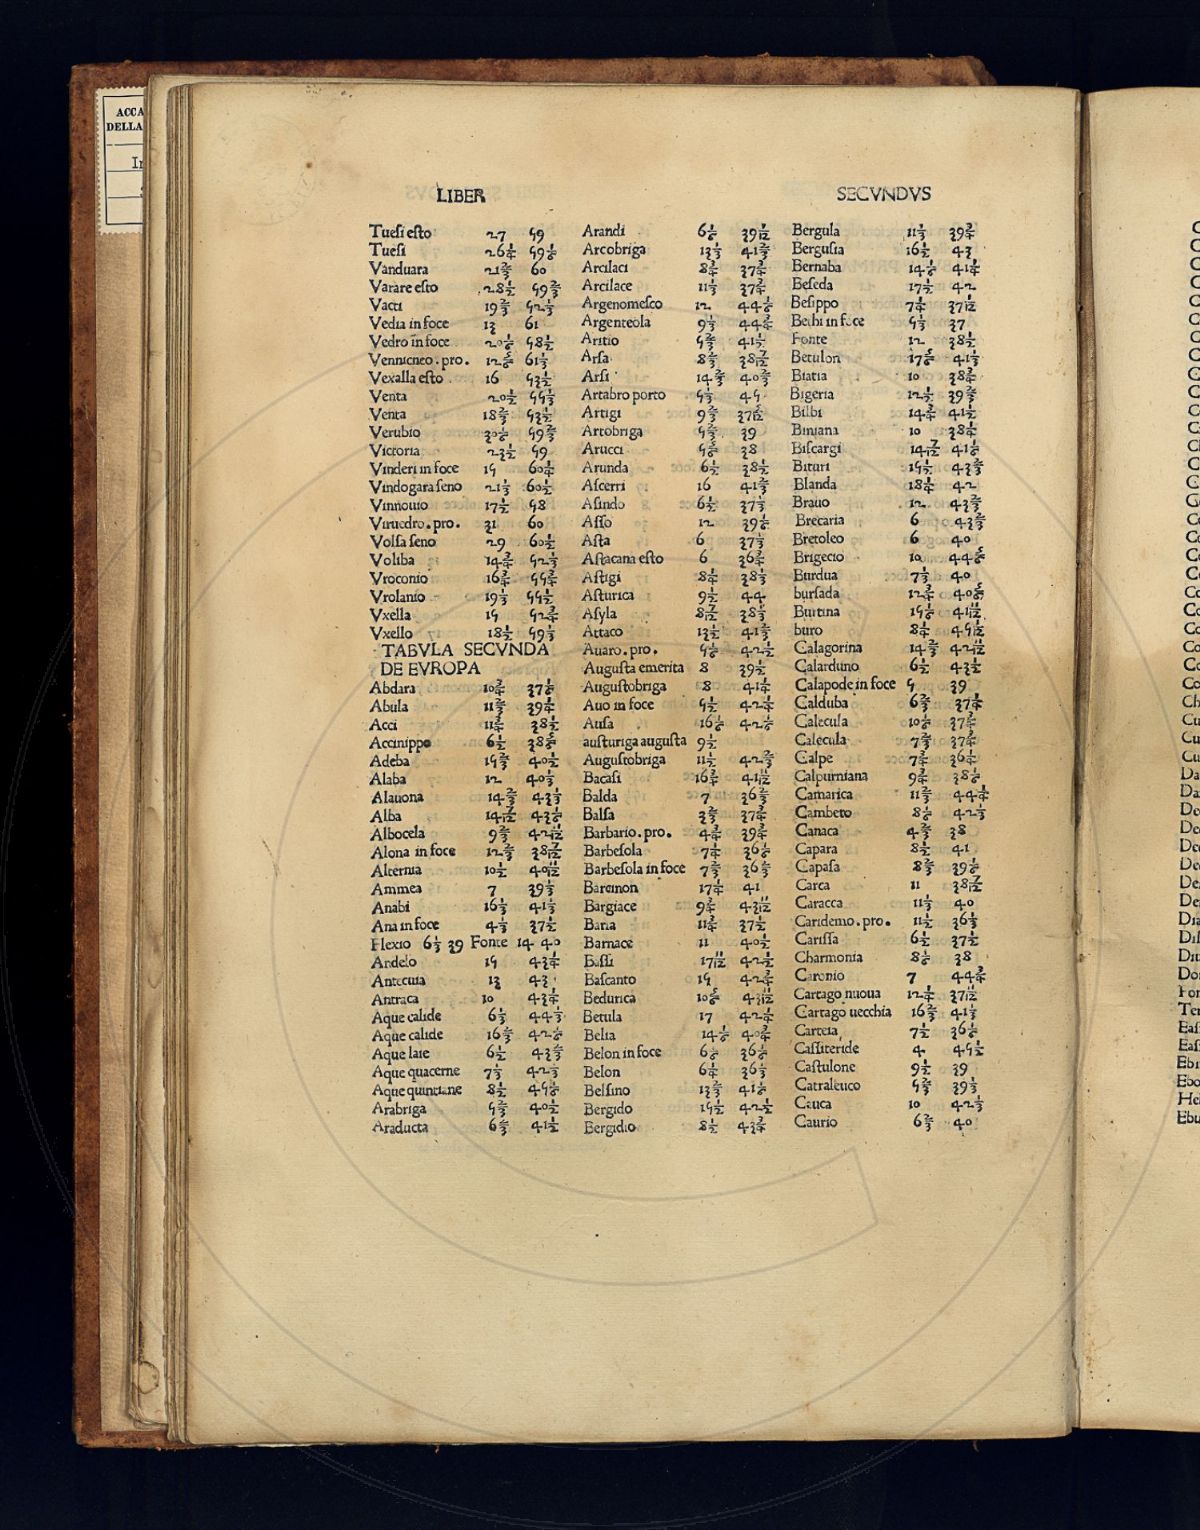 ACCA
DELLA
In
LIBER
SECVNDVS
Tuesi esto 27 59
Tuesi 26 1/4 59 1/6
Vanduara 21 2/3 60
Varare esto 28 1/2 59 2/3
Vacti 19 2/3 52 1/3
Vedia in foce 13 61
Vedro in foce 20 1/6 58 1/2
Vennicneo.pro. 12 5/6 61 1/3
Vexalla esto 16 53 1/2
Venta 20 1/2 55 1/3
Venta 18 2/3 53 1/2
Verubio 30 1/6 59 2/3
Victoria 23 1/2 59
Vinderi in foce 15 60 1/4
Vindogara seno 21 1/3 60 1/2
Vinnouio 17 1/2 58
Viruedro.pro. 31 60
Volsa seno 29 60 1/2
Voliba 14 3/4 52 1/3
Vroconio 16 3/4 55 3/4
Vrolanio 19 1/3 55 1/2
Vxella 15 52 3/4
Vxello 18 1/2 59 1/3
TABVLA SECVNDA
DE EVROPA
Abdara 10 3/4 37 1/6
Abula 11 2/3 39 1/4
Acci 11 3/4 38 1/2
Accinippo 6 1/2 38 5/6
Adeba 15 2/3 40 1/2
Alaba 12 40 1/3
Alauona 14 2/3 43 1/3
Alba 14 7/12 43 1/6
Albocela 9 2/3 42 11/12
Alona in foce 12 2/3 38 7/12
Alternia 10 1/2 40 11/12
Ammea 7 39 1/3
Anabi 16 1/3 41 1/3
Ana in foce 4 1/3 37 1/2
Flexio 6 1/3 39 Fonte 14 40
Andelo 15 43 1/4
Antecuia 13 43
Antraca 10 43 1/4
Aque calide 6 1/3 44 1/3
Aque calide 16 2/3 42 1/6
Aque laie 6 1/2 43 2/3
Aque quacerne 7 1/3 42 1/3
Aque quintiane 8 1/2 45 1/6
Arabriga 5 2/3 40 1/2
Araducta 6 2/3 41 1/2
Arandi 6 1/6 39 1/12
Arcobriga 13 1/3 41 2/3
Arcilaci 8 3/4 37 3/4
Arcilace 11 1/3 37 3/4
Argenomesco 12 44 1/6
Argenteola 9 1/3 44 3/4
Aritio 5 2/3 41 1/2
Arsa 8 2/3 38 7/12
Arsi 14 2/3 40 2/3
Artabro porto 5 1/3 45
Artigi 9 2/3 37 5/12
Artobriga 5 2/3 39
Arucci 5 5/6 38
Arunda 6 1/2 38 1/2
Ascerri 16 41 2/3
Asindo 6 1/2 37 1/3
Asso 12 39 1/6
Asta 6 37 1/3
Astacana esto 6 36 3/4
Astigi 8 1/4 38 1/3
Asturica 9 1/2 44
Asyla 8 7/12 38 1/3
Attaco 13 1/2 41 2/3
Auaro.pro. 5 1/6 42 1/2
Augusta emerita 8 39 1/2
Augustobriga 8 41 1/4
Auo in foce 5 1/2 42 1/4
Ausa 16 1/6 42 1/6
austuriga augusta 9 1/2
Augustobriga 11 1/2 42 2/3
Bacasi 16 3/4 41 5/12
Balda 7 36 2/3
Balsa 3 2/3 37 3/4
Barbario.pro. 4 3/4 39 3/4
Barbesola 7 1/4 36 1/6
Barbesola in foce 7 2/3 36 2/3
Barcinon 17 1/4 41
Bargiace 9 3/4 43 5/12
Baria 11 3/4 37 1/2
Barnace 11 40 1/2
Bassi 17 11/12 42 1/2
Bascanto 15 42 3/4
Bedunca 10 5/6 43 5/12
Betula 17 42 1/4
Belia 14 1/6 40 3/4
Belon in foce 6 1/6 36 1/6
Belon 6 1/4 36 1/3
Belsino 13 2/3 41 1/6
Bergido 15 1/2 42 1/2
Bergidio 8 1/2 43 3/4
Bergula 11 1/3 39 3/4
Bergusia 16 1/2 43
Bernaba 14 1/6 41 1/4
Beseda 17 1/2 42
Besippo 7 1/4 37 1/12
Bethi in foce 5 1/3 37
Fonte 12 38 1/2
Betulon 17 5/6 41 1/3
Biatia 10 38 3/4
Bigeria 12 1/2 39 2/3
Bilbi 14 3/4 41 1/2
Biniana 10 38 1/4
Biscargi 14 7/12 41 1/6
Bituri 15 1/2 43 2/3
Blanda 18 1/4 42
Brauo 12 43 2/3
Brecaria 6 43 2/3
Bretoleo 6 40
Brigecio 10 44 5/6
Burdua 7 1/3 40
bursada 12 3/4 40 5/6
Burtina 15 1/6 41 11/12
buro 8 1/4 45 1/12
Calagorina 14 2/3 42 11/12
Calarduno 6 1/2 43 1/2
Calapode in foce 5 39
Calduba 6 2/3 37 1/4
Calecula 10 1/6 37 3/4
Calecula 7 2/3 37 3/4
Calpe 7 3/4 36 1/4
Calpurniana 9 3/4 38 1/6
Camarica 11 2/3 44 1/4
Cambeto 8 1/6 42 1/3
Canaca 4 2/3 38
Capara 8 1/2 41
Capasa 8 2/3 39 1/6
Carca 11 38 7/12
Caracca 11 1/3 40
Caridemo.pro. 11 1/2 36 1/3
Carissa 6 1/2 37 1/2
Charmonia 8 1/6 38
Caronio 7 44 3/4
Cartago nuoua 12 1/4 37 11/12
Cartago uecchia 16 2/3 41 1/3
Carteia 7 1/2 36 1/6
Cassiteride 4 45 1/2
Castulone 9 1/2 39
Catraleuco 5 2/3 39 1/3
Cauca 10 42 1/3
Caurio 6 2/3 40